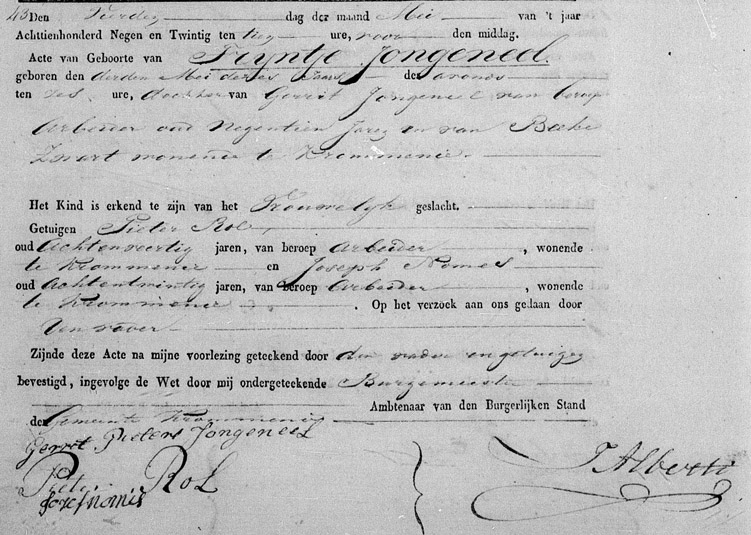 43 Den Vierden dag der maand Mei van 't jaar
Achttienhonderd Negen en Twintig ten tien ure, voor den middag.
Acte van Geboorte van Tryntje Jongeneel
geboren den derden Mei dezes Jaars des avonds
ten zes ure, dochter van Gerrit Jongeneel van beroep
Arbeider oud Negentien Jaren en van Baeke
Zwart wonende te Krommenie.
Het Kind is erkend te zijn van het Vrouwelyk geslacht.
Getuigen Pieter Rol,
oud Achtenveertig jaren, van beroep Arbeider, wonende
te Krommenie en Joseph Nomes
oud Achtentwintig jaren, van beroep Arbeider, wonende
te Krommenie. Op het verzoek aan ons gedaan door
den vader
Zijnde deze Acte na mijne voorlezing geteekend door den vader en getuigen
bevestigd, ingevolge de Wet door mij ondergeteekende Burgemeester
Ambtenaar van den Burgerlijken Stand
der Gemeente Krommenie
Gerret Pieters Jongeneel
Pieter Rol
Josef nomes
J Alberti